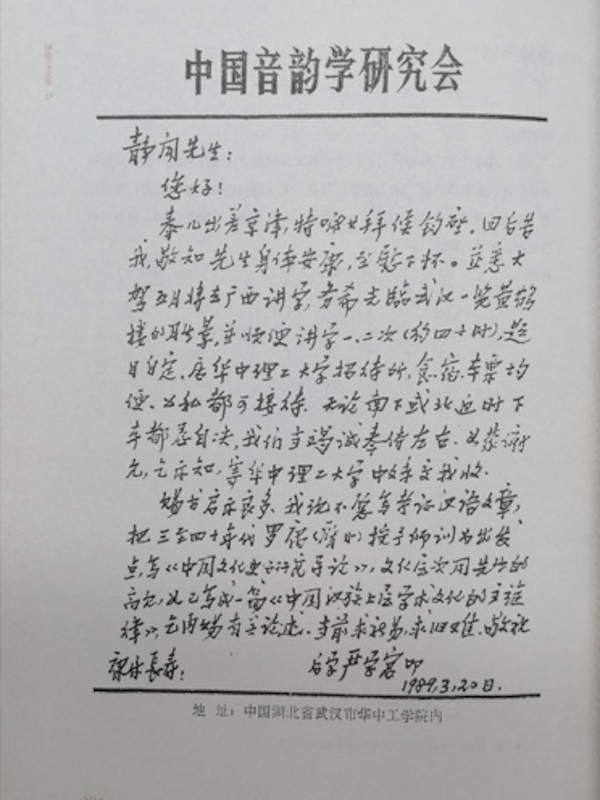 中国音韵学研究会
静闻先生：
您好！
泰儿出差京津，特嘱其拜侯钧座，回后告
我，敬知先生身体安康，至慰下怀。并悉大
驾五月将去广西讲学，务希光临武汉一览黄鹤
楼的胜景，并顺便讲学一、二次（约四小时），题
目自定，居华中理工大学招待所，食、宿、车票均
便，公私都可接待。无论南下或北返时下
车都悉自决，我们当竭诚奉侍左右。如蒙谢
允，乞示知，寄华中理工大学中文系交我收。
赐书启示良多，我说不愿写考证汉语文章，
把三至四十年代罗、张授予师训为出发
点，写《中国文化史研究导论》，文化层次用先生的
高见，又已写成一篇《中国汉族上层学术文化的主旋
律》，乞内赐有主论述。当前求新易，求旧难。敬祝
康体长寿！
后学严学宭叩
1989,3,20日.
地 址：中国湖北省武汉市华中工学院内